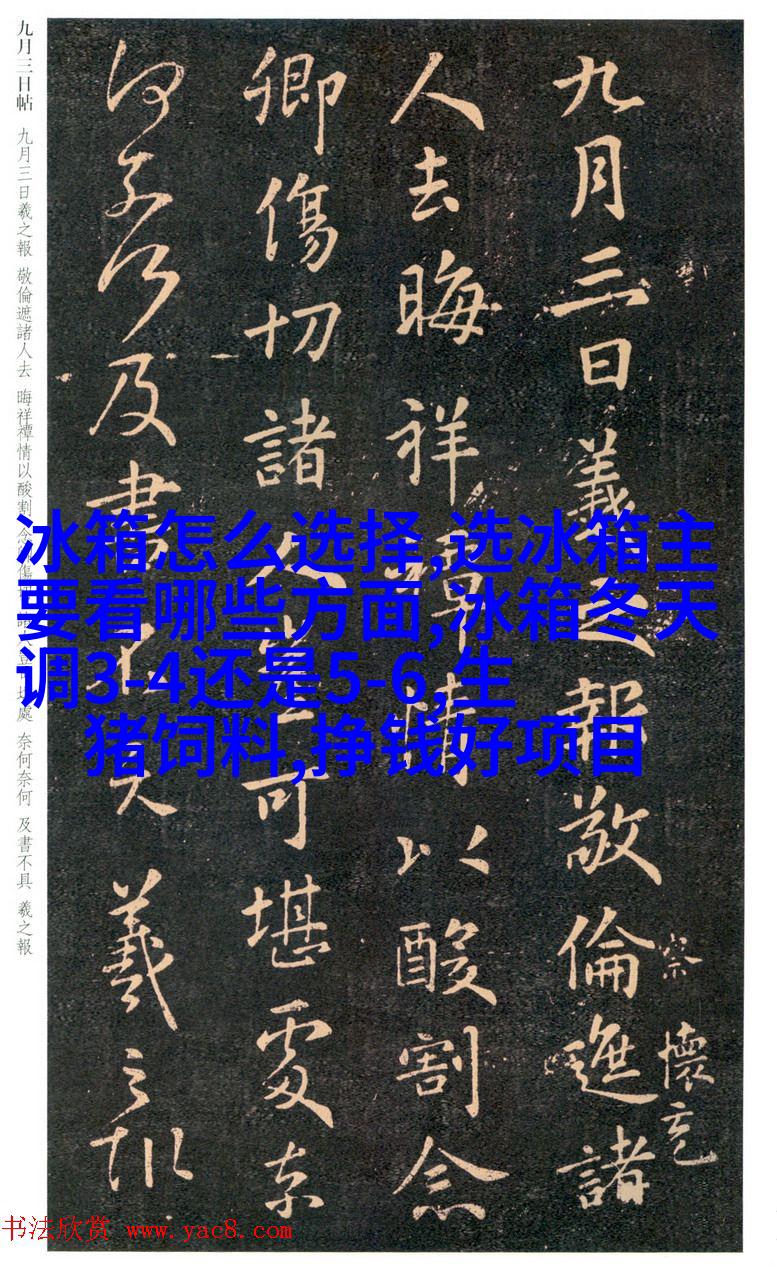 九月三日羲之報敬倫遮諸
察 懷充
人去晦祥禫情以酸割念
卿傷切諸人豈可堪處奈
何奈何及書不具羲之報
九月三日帖 九月三日羲之報 敬倫遮諸人去 晦祥禫情以酸割 念卿傷切 諸人豈可堪處 奈何奈何 及書不具 羲之報
冰箱怎么选择,选冰箱主
要看哪些方面,冰箱冬天
调3-4还是5-6,生
猪饲料,挣钱好项目
书法欣赏 www.yac8.com